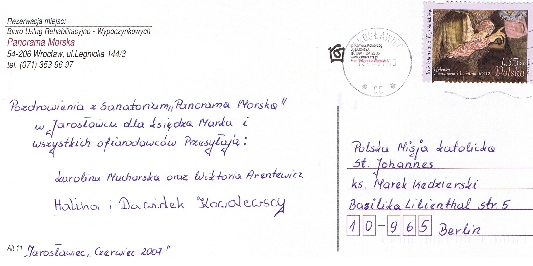 Rezerwacja miejsc:
Biuro Usług Rehabilitacyjno - Wypoczynkowych
Panorama Morska
54-206 Wrocław, ul. Legnicka 144/3
Pozdrowienia z Sanatorium "Panorama Morska"
w Jarosławcu dla księdza Marka i
wszystkich ofiarodawców Przesyłają:
Karolina Mucharska oraz Wiktoria Arentewicz
Halina i Dawidek Kowalewscy
"Jarosławiec, Czerwiec 2007"
Polska
Polska Misja Katolicka
St. Johannes
ks. Marek Kędzierski
Basilika Lilienthal str. 5
10-965 Berlin